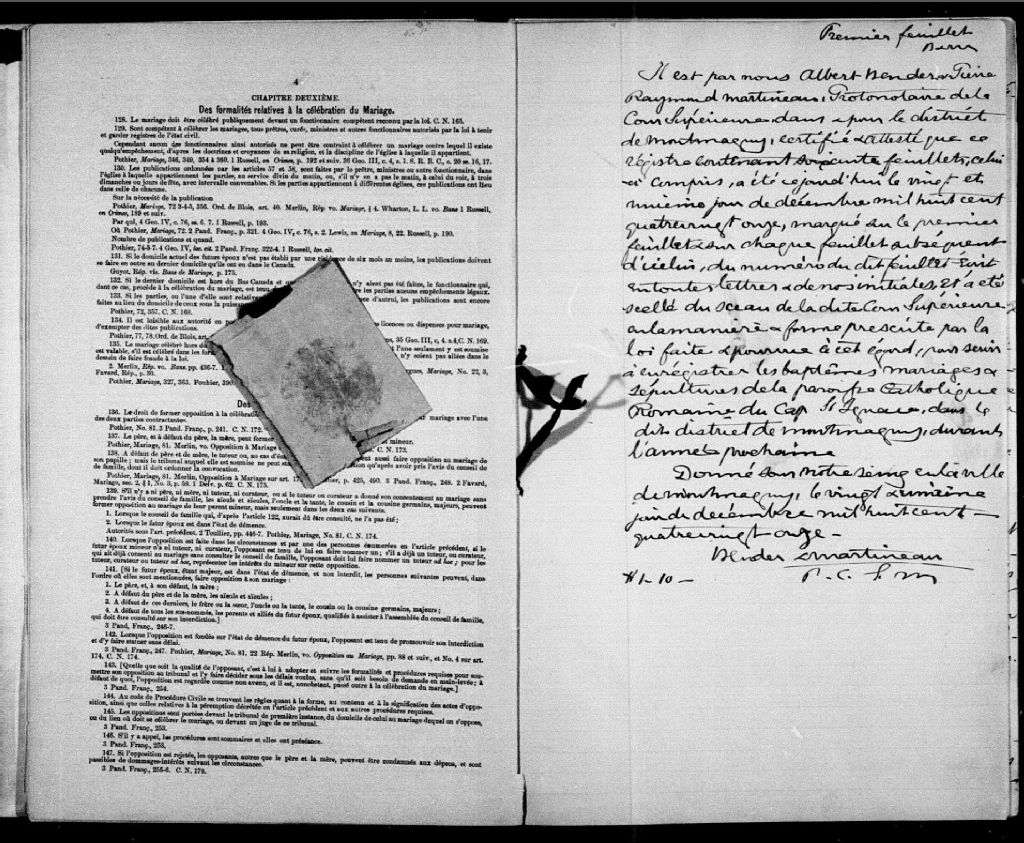 4
CHAPITRE DEUXIÈME.
Des formalités relatives à la célébration du Mariage.
128. Le mariage doit être célébré publiquement devant un fonctionnaire compétent reconnu par la loi. C. N. 165.
129. Sont compétents à célébrer les mariages, tous prêtres, curés, ministres et autres fonctionnaires autorisés par la loi à tenir
et garder registres de l'état civil.
Cependant aucun des fonctionnaires ainsi autorisés ne peut être contraint à célébrer un mariage contre lequel il existe
quelqu'empêchement, d'après les doctrines et croyances de sa religion, et la discipline de l'église à laquelle il appartient.
Pothier, Mariage, 346, 349, 354 à 360. 1 Russell, on Crimes, p. 192 et suiv. 36 Geo. III, c. 4, s. 1. S. R. B. C., c. 20 ss. 16, 17.
130. Les publications ordonnées par les articles 57 et 58, sont faites par le prêtre, ministre ou autre fonctionnaire, dans
l'église à laquelle appartiennent les parties, au service divin du matin, ou, s'il n'y en a pas le matin, à celui du soir, à trois
dimanches ou jours de fête, avec intervalle convenables. Si les parties appartiennent à différentes églises, ces publications ont lieu
dans celle de chacune.
Sur la nécessité de la publication
Pothier, Mariage, 72 3-4-5, 356. Ord. de Blois, art. 40. Merlin, Rép. vo. Mariage, § 4. Wharton, L. L. vo. Bans 1 Russell,
on Crimes, 189 et suiv.
Par qui, 4 Geo. IV, c. 76, ss. 6, 7. 1 Russell, p. 193.
Où Pothier, Mariage, 72. 2 Pand. Franç., p. 321. 4 Geo. IV, c. 76, s. 2. Lewis, on Mariage, 8, 22. Russell, p. 190.
Nombre de publications et quand.
Pothier, 74-5-7. 4 Geo. IV, loc. cit. 2 Pand. Franç. 322-4. 1 Russell, loc. cit.
131. Si le domicile actuel des futurs époux n'est pas établi par une résidence de six mois au moins, les publications doivent
se faire en outre au dernier domicile qu'ils ont eu dans le Canada.
Guyot, Rép. vls. Bans de Mariage, p. 175.
132. Si le dernier domicile est hors du Bas Canada et n'y aient pas été faites, le fonctionnaire qui,
dans ce cas, procède à la célébration du mariage, est tenu les parties aucuns empêchements légaux.
133. Si les parties, ou l'une d'elle sont relative d'autrui, les publications sont encore
faites au lieu du domicile de ceux sous la puissan
Pothier, 72, 357. C. N. 168.
134. Il est loisible aux autorité en po licences ou dispenses pour mariage,
d'exempter des dites publications.
Pothier, 77, 78. Ord. de Blois, art. 35 Geo. III, c. 4. s.4, C. N. 169.
135. Le mariage célébré hors du l'une seulement y est soumise
est valable, s'il est célébré dans les for n'y soient pas allées dans le
dessein de faire fraude à la loi.
2. Merlin, Rép. vo. Bans pp. 436-7. Mariage, No. 22, 3,
Favard, Rép., p. 30.
Pothier, Mariage, 327, 363. Pouhier, 290
Des
136. Le droit de former opposition à la célébration mariage avec l'une
des deux parties contractantes.
Pothier, No. 81. 3 Pand. Franç., p. 241. C. N. 172.
137. Le père, et à défaut du père, la mère, peut former mineur.
Pothier, Mariage, 81. Merlin, vo. Opposition à Mariage C. N. 173.
138. A défaut de père et de mère, le tuteur ou, au cas d'é aussi faire opposition au mariage de
son pupille; mais le tribunal auquel elle est soumise ne peut sta qu'après avoir pris l'avis du conseil de
de famille, dont il doit ordonner la convocation.
Pothier, Mariage, 81. Merlin, Opposition à Mariage sur art. 17 p. 425, 490. 3 Pand. Franç., 248. 2 Favard,
Mariage, sec. 2, § 1, No. 3, p. 59. 1 Delv. p. 62. C. N. 175.
139. S'il n'y a ni père, ni mère, ni tuteur, ni curateur, ou si le tuteur ou curateur a donné son consentement au mariage sans
prendre l'avis du conseil de famille, les aïeuls et aïeules, l'oncle et la tante, le cousin et la cousine germains, majeurs, peuvent
former opposition au mariage de leur parent mineur, mais seulement dans les deux cas suivants.
1. Lorsque le conseil de famille qui, d'après l'article 122, aurait dû être consulté, ne l'a pas été;
2. Lorsque le futur époux est dans l'état de démence.
Autorités sous l'art. précédent. 2 Toullier, pp. 446-7. Pothier, Mariage, No. 81. C. N. 174.
140. Lorsque l'opposition est faite dans les circonstances et par une des personnes énumérées en l'article précédent, si le
futur époux mineur n'a ni tuteur, ni curateur, l'opposant est tenu de lui en faire nommer un; s'il a déjà un tuteur, ou curateur,
qui ait déjà consenti au mariage sans consulter le conseil de famille, l'opposant doit lui faire nommer un tuteur ad hoc; pour les
tuteur, curateur ou tuteur ad hoc, représenter les intérêts du mineur sur cette opposition.
141. [Si le futur époux, étant majeur, est dans l'état de démence, et non interdit, les personnes suivantes peuvent, dans
l'ordre où elles sont mentionnées, faire opposition à son mariage:
1. Le père, et, à son défaut, la mère;
2. A défaut du père et de la mère, les aïeuls et aïeules;
3. A défaut de ces derniers, le frère ou la sœur, l'oncle ou la tante, le cousin ou la cousine germains, majeurs;
4. A défaut de tous les sus-nommés, les parents et alliés du futur époux, qualifiés à assister à l'assemblée du conseil de famille,
qui doit être consulté sur son interdiction.]
3 Pand. Franç., 246-7.
142. Lorsque l'opposition est fondée sur l'état de démence du futur époux, l'opposant est tenu de promouvoir son interdiction
et d'y faire statuer sans délai.
3 Pand. Franç., 247. Pothier, Mariage, No. 81. 22 Rép. Merlin, vo. Opposition au Mariage, pp. 88 et suiv., et No. 4 sur art.
174, C. N. 174.
143. [Quelle que soit la qualité de l'opposant, c'est à lui à adopter et suivre les formalités et procédures requises pour sou-
mettre son opposition au tribunal et l'y faire décider sous les délais voulus, sans qu'il soit besoin de demande en main-levée; à
défaut de quoi, l'opposition est regardée comme non avenu, et il est, nonobstant, passé outre à la célébration du mariage.]
3 Pand. Franç., 254.
144. Au code de Procédure Civile se trouvent les règles quant à la forme, au contenu et à la signification des actes d'oppo-
sition, ainsi que celles relatives à la péremption décrétée en l'article précédent et aux autres procédures requises.
145. Les oppositions sont portées devant le tribunal de première instance, du domicile de celui au mariage duquel on s'oppose,
ou du lieu où doit se célébrer le mariage, ou devant un juge de ce tribunal.
3 Pand. Franç., 253.
146. S'il y a appel, les procédures sont sommaires et elles ont préséance.
3 Pand. Franç., 253.
147. Si l'opposition est rejetée, les opposants, autres que le père et la mère, peuvent être condamnés aux dépens, et sont
passibles de dommages-intérêts suivant les circonstances.
3 Pand. Franç., 255-6. C. N. 179.
Premier feuillet
Il est par nous Albert Bender & Pierre
Raymond Martineau, Protonotaire de la
Cour Supérieure dans & pour le district
de Montmagny, certifié & attesté que ce
régistre contenant soixante feuillets, celui
-ci compris, a été cejourd'hui le vingt et
unième jour de décembre mil huit cent
quatrevingt onze, marqué sur le premier
feuillet & sur chaque feuillet subséquent
d'icelui, du numéro du dit feuillet écrit
en toutes lettres & de nos initiales, Et a été
scellé du sceau de la dite Cour Supérieure
en la manière & forme prescrite par la
loi faite & pourvue à cet égard, pour servir
à enrégistrer les baptêmes mariages &
sépultures de la paroisse Catholique
Romaine du Cap St Ignace, dans le
dit district de Montmagny, durant
l'année prochaine
Donné sous notre seing en la ville
de Montmagny, le vingt & unième
jour de décembre mil huit cent
quatrevingt onze -
Bender & Martineau
P. C. S. M
#1-10 -